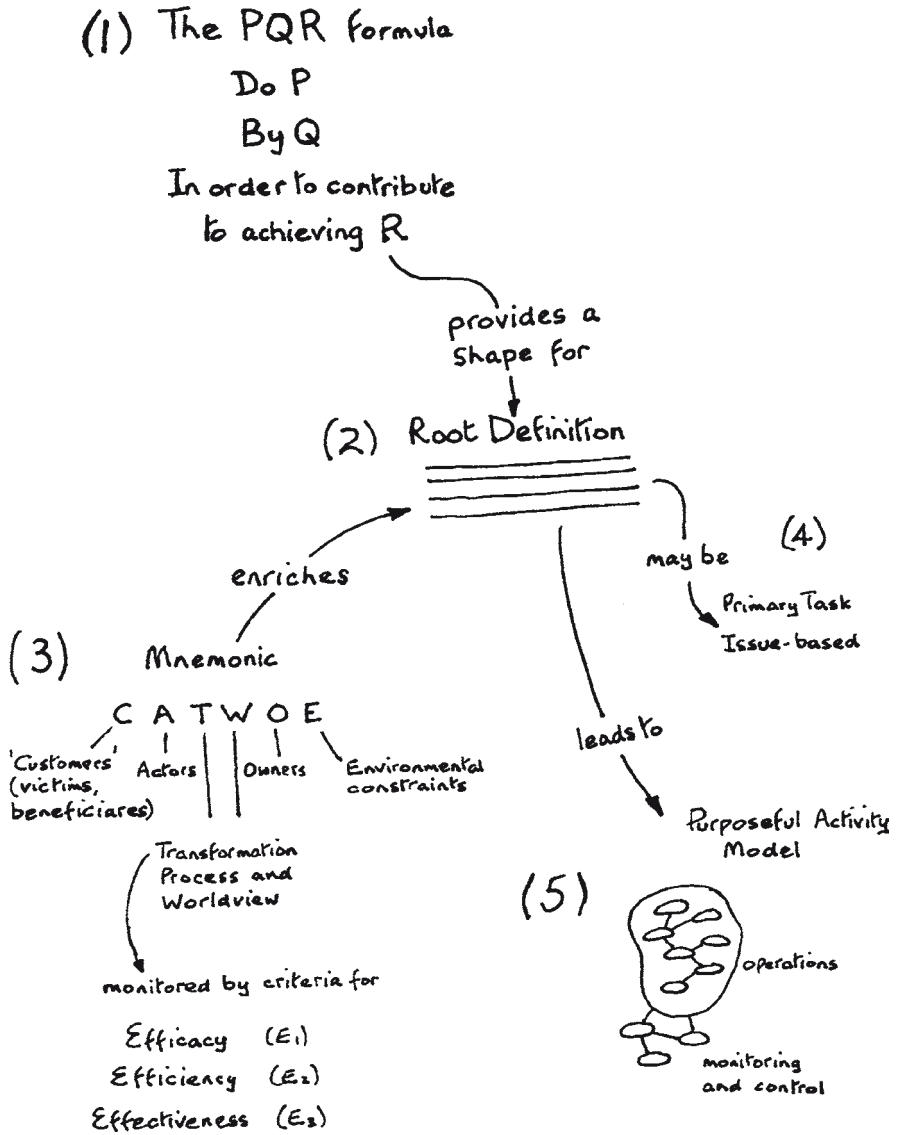 (1) The PQR formula
Do P
By Q
In order to contribute
to achieving R
provides a
shape for
(2) Root Definition
enriches
may be
(4)
Primary Task
Issue-based
(3)
Mnemonic
C A T W O E
'Customers'
(victims,
beneficiares)
Actors
Owners
Environmental
constraints
Transformation
Process and
Worldview
monitored by criteria for
Efficacy (E₁)
Efficiency (E₂)
Effectiveness (E₃)
leads to
Purposeful Activity
Model
(5)
operations
monitoring
and control